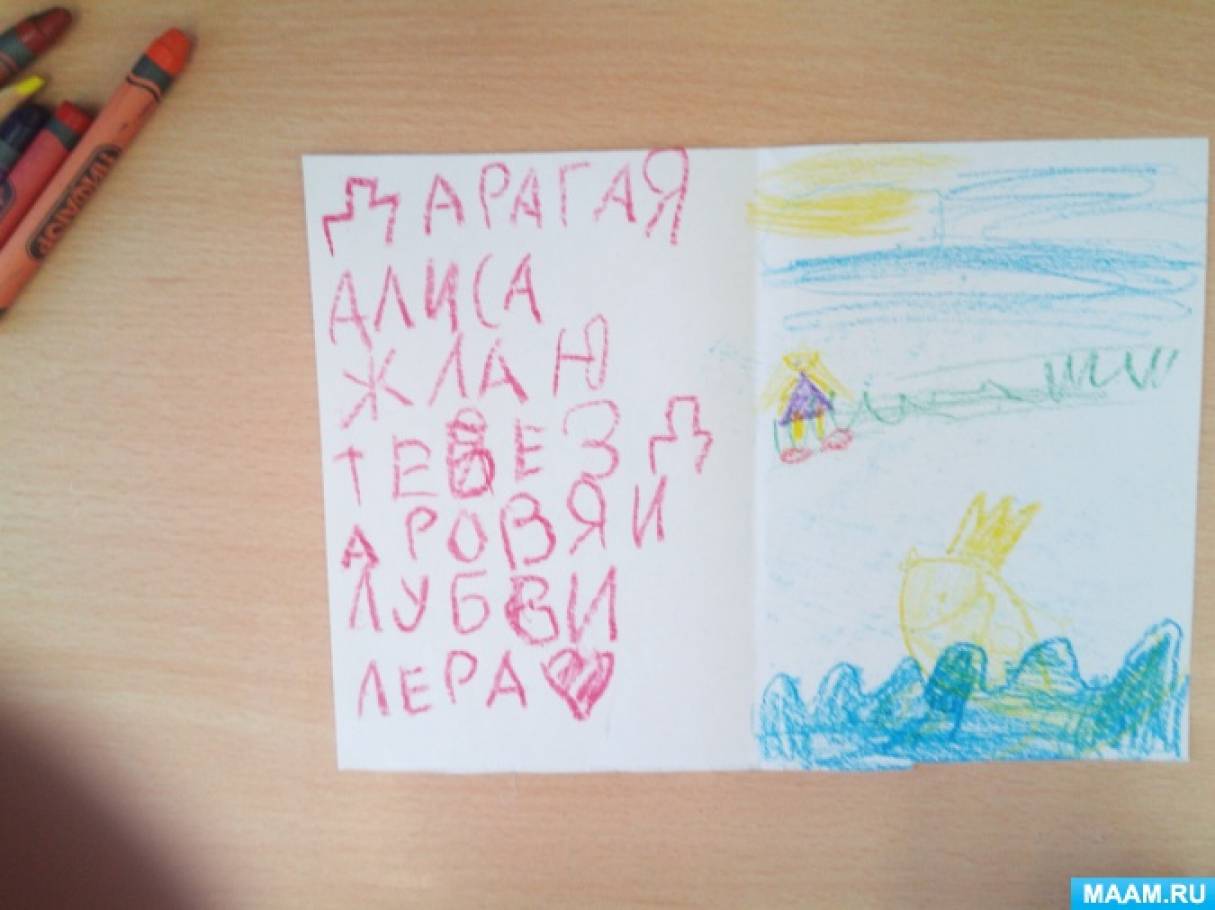 ДАРАГАЯ
АЛИСА
ЖЛАЮ
ТЕБЕ ЗД
АРОВЯ И
ЛУБВИ
ЛЕРА
MAAM.RU